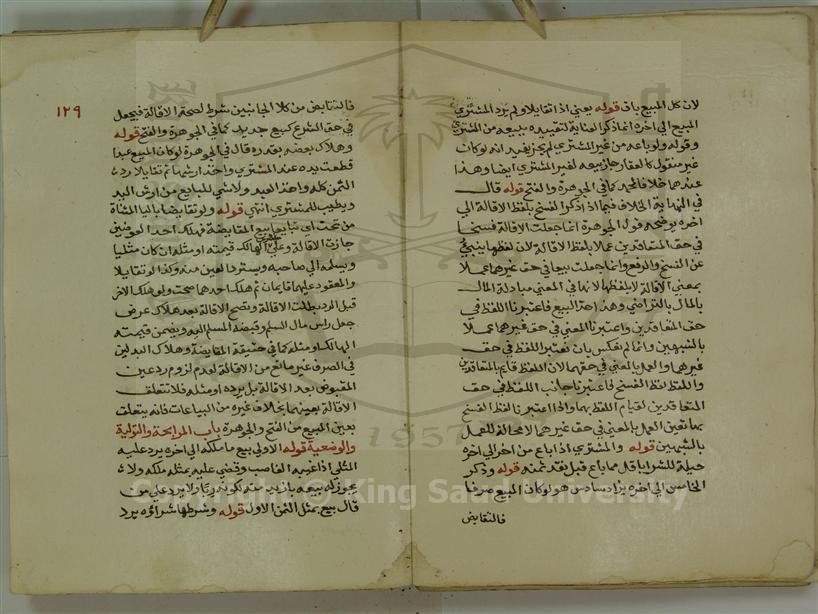 لان كل المبيع باق قوله يعني اذا تقايلا ولم يرد المشتري
المبيع الى اخره انما ذكر العناية لتقييده ببيعه من المشتري
وقوله ولو باعه من غير المشتري لم يجز يفيد انه لو كان
غير منقول كالعقار جاز بيعه لغير المشتري ايضا وهذا
عندهما خلافا لمحمد كما في الجوهرة والفتح قوله قال
في النهاية الخلاف فيما اذا ذكر الفسخ بلفظ الاقالة الى
اخره يوضحه قول الجوهرة انما جعلت الاقالة فسخا
في حق المتعاقدين عملا بلفظ الاقالة لان لفظها ينبئ
عن الفسخ والرفع وانما جعلت بيعا في حق غيرهما عملا
بمعنى الاقالة لا بلفظها لانها في المعنى مبادلة المال
بالمال بالتراضي وهذا حد البيع فاعتبرنا اللفظ في
حق المتعاقدين واعتبرنا المعنى في حق غيرهما عملا
بالشبهين وانما لم نعكس بان نعتبر اللفظ في حق
غيرهما والعمل بالمعنى في حقهما لان اللفظ قائم بالمتعاقدين
واللفظ لفظ الفسخ فاعتبرنا جانب اللفظ في حق
المتعاقدين لقيام اللفظ بهما واذا اعتبرنا لفظ الفسخ
بهما تعين العمل بالمعنى في حق غيرهما لا محالة للعمل
بالشبهين قوله والمشتري اذا باع من اخر الى اخره
حيلة للشراء باقل مما باع قبل نقد ثمنه قوله وذكر
الخامس الى اخره يزاد سادس هو لو كان المبيع صرفا
فالتقابض
١٢٩
فالتقابض من كلا الجانبين شرط لصحة الاقالة فيجعل
في حق الشرع كبيع جديد كما في الجوهرة والفتح قوله
وهلاك بعضه بقدره قال في الجوهرة لو كان المبيع عبدا
فقطعت يده عند المشتري واخذ ارشها ثم تقايلا رد
الثمن كله واخذ العبد ولا شي للبايع من ارش اليد
ويطيب للمشتري انتهى قوله ولو تقايضا باليا المثناة
من تحت اي تبايعا بيع المقايضة فهلك احد العوضين
جازت الاقالة وعلى الهالك قيمته او مثله ان كان مثليا
ويسلمه الى صاحبه ويسترد العين منه وكذا لو تقايلا
والمعقود عليهما قايمان ثم هلك احدهما صحت ولو هلك الاخر
قبل الرد بطلت الاقالة وتصح الاقالة بعد هلاك عرض
جعل راس مال السلم وقبضه المسلم اليه ويضمن قيمته
الهالك او مثله كما في حقيقة المقايضة وهلاك البدلين
في الصرف غير مانع من الاقالة لعدم لزوم رد عين
المقبوض بعد الاقالة بل يرده او مثله فلا تتعلق
الاقالة بعينهما بخلاف غيره من البياعات فانه يتعلق
بعين المبيع من الفتح والجوهرة باب المرابحة والتولية
والوضعية قوله الاولى بيع ما ملكه الى اخره يرد عليه
المثلي اذا غيبه الغاصب وقضي عليه بمثله ملكه ولا
يجوز له بيعه بازيد منه لكونه ربا ولا يرد على من
قال بيع بمثل الثمن الاول قوله وشرطها شراؤه يرد
Copyright © King Saud University
1957